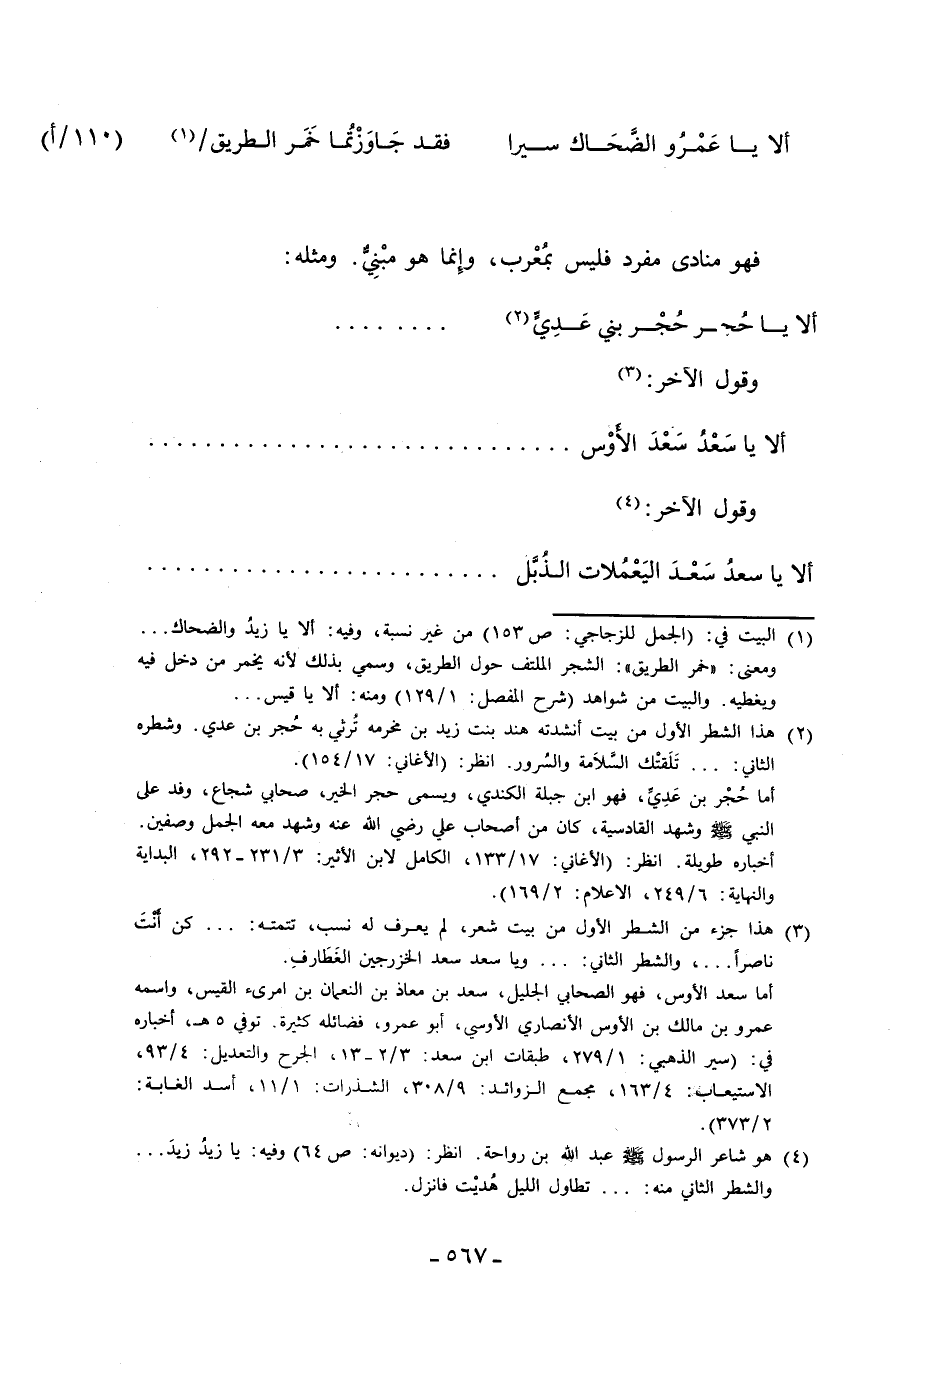 ألا يـــا عَمْـرُو الضَّحَـاك سـيرا فقـد جَـاوَزْتُمـا خَمَر الـطريق/(١) (١١٠/أ)
فهو منادى مفرد فليس بمُعْرب، وإنما هو مبْنيٌّ. ومثله:
ألا يـا حُجـر حُجْـر بني عَـديٍّ(٢) ........
وقول الآخر:(٣)
ألا يا سَعْدُ سَعْدَ الأَوْس ..............................
وقول الآخر:(٤)
ألا يا سعدُ سَعْـدَ اليَعْمُلات الـذُبَّل .........................
(١) البيت في: (الجمل للزجاجي: ص ١٥٣) من غير نسبة، وفيه: ألا يا زيدُ والضحاك...
ومعنى: «خمر الطريق»: الشجر الملتف حول الطريق، وسمي بذلك لأنه يخمر من دخل فيه
ويغطيه. والبيت من شواهد (شرح المفصل: ١٢٩/١) ومنه: ألا يا قيس...
(٢) هذا الشطر الأول من بيت أنشدته هند بنت زيد بن مخرمه تُرثي به حُجر بن عدي. وشطره
الثاني: ... تَلَقتْك السَّلاَمة والسُرور. انظر: (الأغاني: ١٥٤/١٧).
أما حُجْر بن عَدِيِّ، فهو ابن جبلة الكندي، ويسمى حجر الخير، صحابي شجاع، وفد على
النبي ﷺ وشهد القادسية، كان من أصحاب علي رضي الله عنه وشهد معه الجمل وصفين.
أخباره طويلة. انظر: (الأغاني: ١٣٣/١٧، الكامل لابن الأثير: ٢٣١/٣ ـ ٢٩٢، البداية
والنهاية: ٢٤٩/٦، الاعلام: ١٦٩/٢).
(٣) هذا جزء من الشطر الأول من بيت شعر، لم يعرف له نسب، تتمته: ... كن أَنْتَ
ناصراً...، والشطر الثاني: ... ويا سعد سعد الخزرجين الغَطَارفِ.
أما سعد الأوس، فهو الصحابي الجليل، سعد بن معاذ بن النعمان بن امرىء القيس، واسمه
عمرو بن مالك بن الأوس الأنصاري الأوسي، أبو عمرو، فضائله كثيرة. توفي ٥ هـ، أخباره
في: (سير الذهبي: ٢٧٩/١، طبقات ابن سعد: ٢/٣ ـ ١٣، الجرح والتعديل: ٩٣/٤،
الاستيعاب: ١٦٣/٤، مجمع الزوائد: ٣٠٨/٩، الشذرات: ١١/١، أسد الغابة:
٣٧٣/٢).
(٤) هو شاعر الرسول ﷺ عبد الله بن رواحة. انظر: (ديوانه: ص ٦٤) وفيه: يا زيدُ زيدَ...
والشطر الثاني منه: ... تطاول الليل هُديْت فانزل.
ـ ٥٦٧ ـ